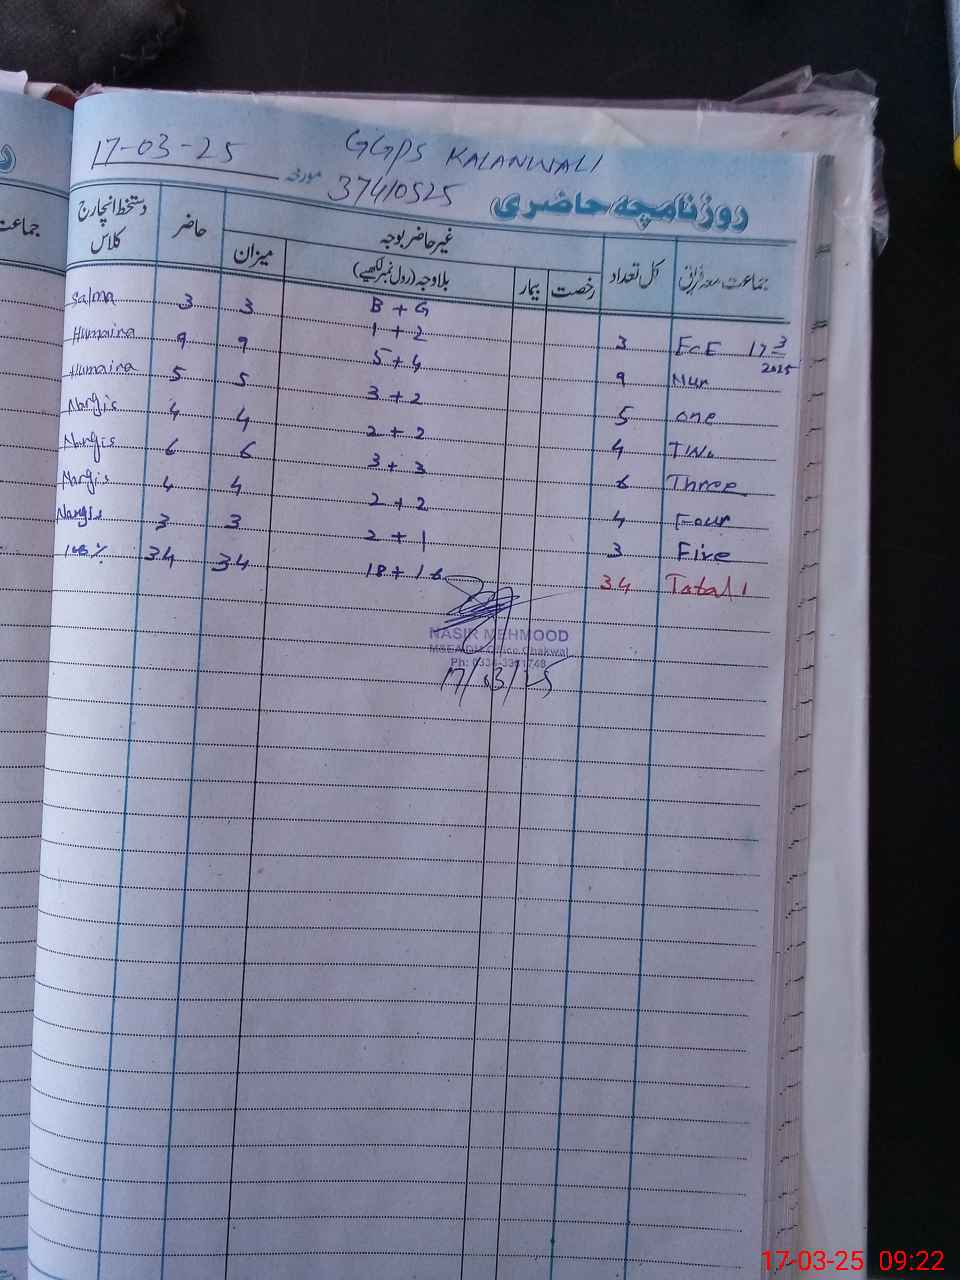 17-03-25
GGPS KALANWALI
مورخہ
37410525
روزنامچہ حاضری
جماعت معہ فریق
کل تعداد
غیر حاضر بوجہ
رخصت
بیمار
بلاوجہ (رول نمبر لکھیے)
میزان
حاضر
دستخط انچارج کلاس
جماعت
B + G
Salma 3 3 1 + 2 3 ECE 17-3-2025
Humaira 9 9 5 + 4 9 Nur
Humaira 5 5 3 + 2 5 one
Nargis 4 4 2 + 2 4 Two
Nargis 6 6 3 + 3 6 Three
Nargis 4 4 2 + 2 4 Four
Nargis 3 3 2 + 1 3 Five
100% 34 34 18 + 16 34 Total
NASIR MEHMOOD
Office Chakwal
17/03/25
17-03-25 09:22